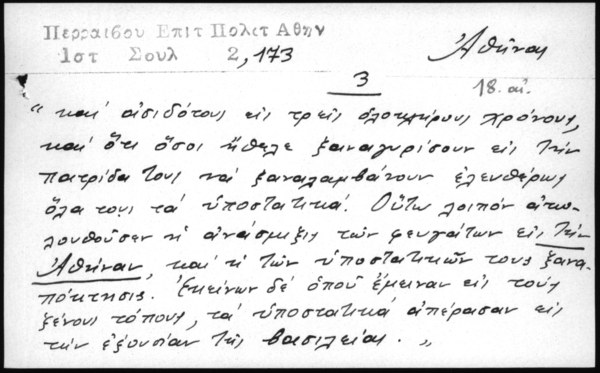 Περραιβου Επιτ Πολετ Αθην
1στ Σουλ 2,173
Ἀθῆναι
3
18. αἰ.
"καί ἀσιδότους εἰς τρεῖς ὁλοκλήρους χρόνους,
καί ὅτι ὅσοι ἤθελε ξαναγυρίσουν εἰς τήν
πατρίδα τους νά ξαναλαμβάνουν ἐλευθέρως
ὅλα τους τά ὑποστατικά. Οὕτω λοιπόν ἀκο-
λουθοῦσεν ἡ ἀνάσμιξις τῶν φευγάτων εἰς τήν
Ἀθήναν, καί ἡ τῶν ὑποστατικῶν τους ξανα-
πόκτησις. Ἐκείνων δέ ὁποῦ ἔμειναν εἰς τούς
ξένους τόπους, τά ὑποστατικά ἀπέρασαν εἰς
τήν ἐξουσίαν τῆς βασιλείας."